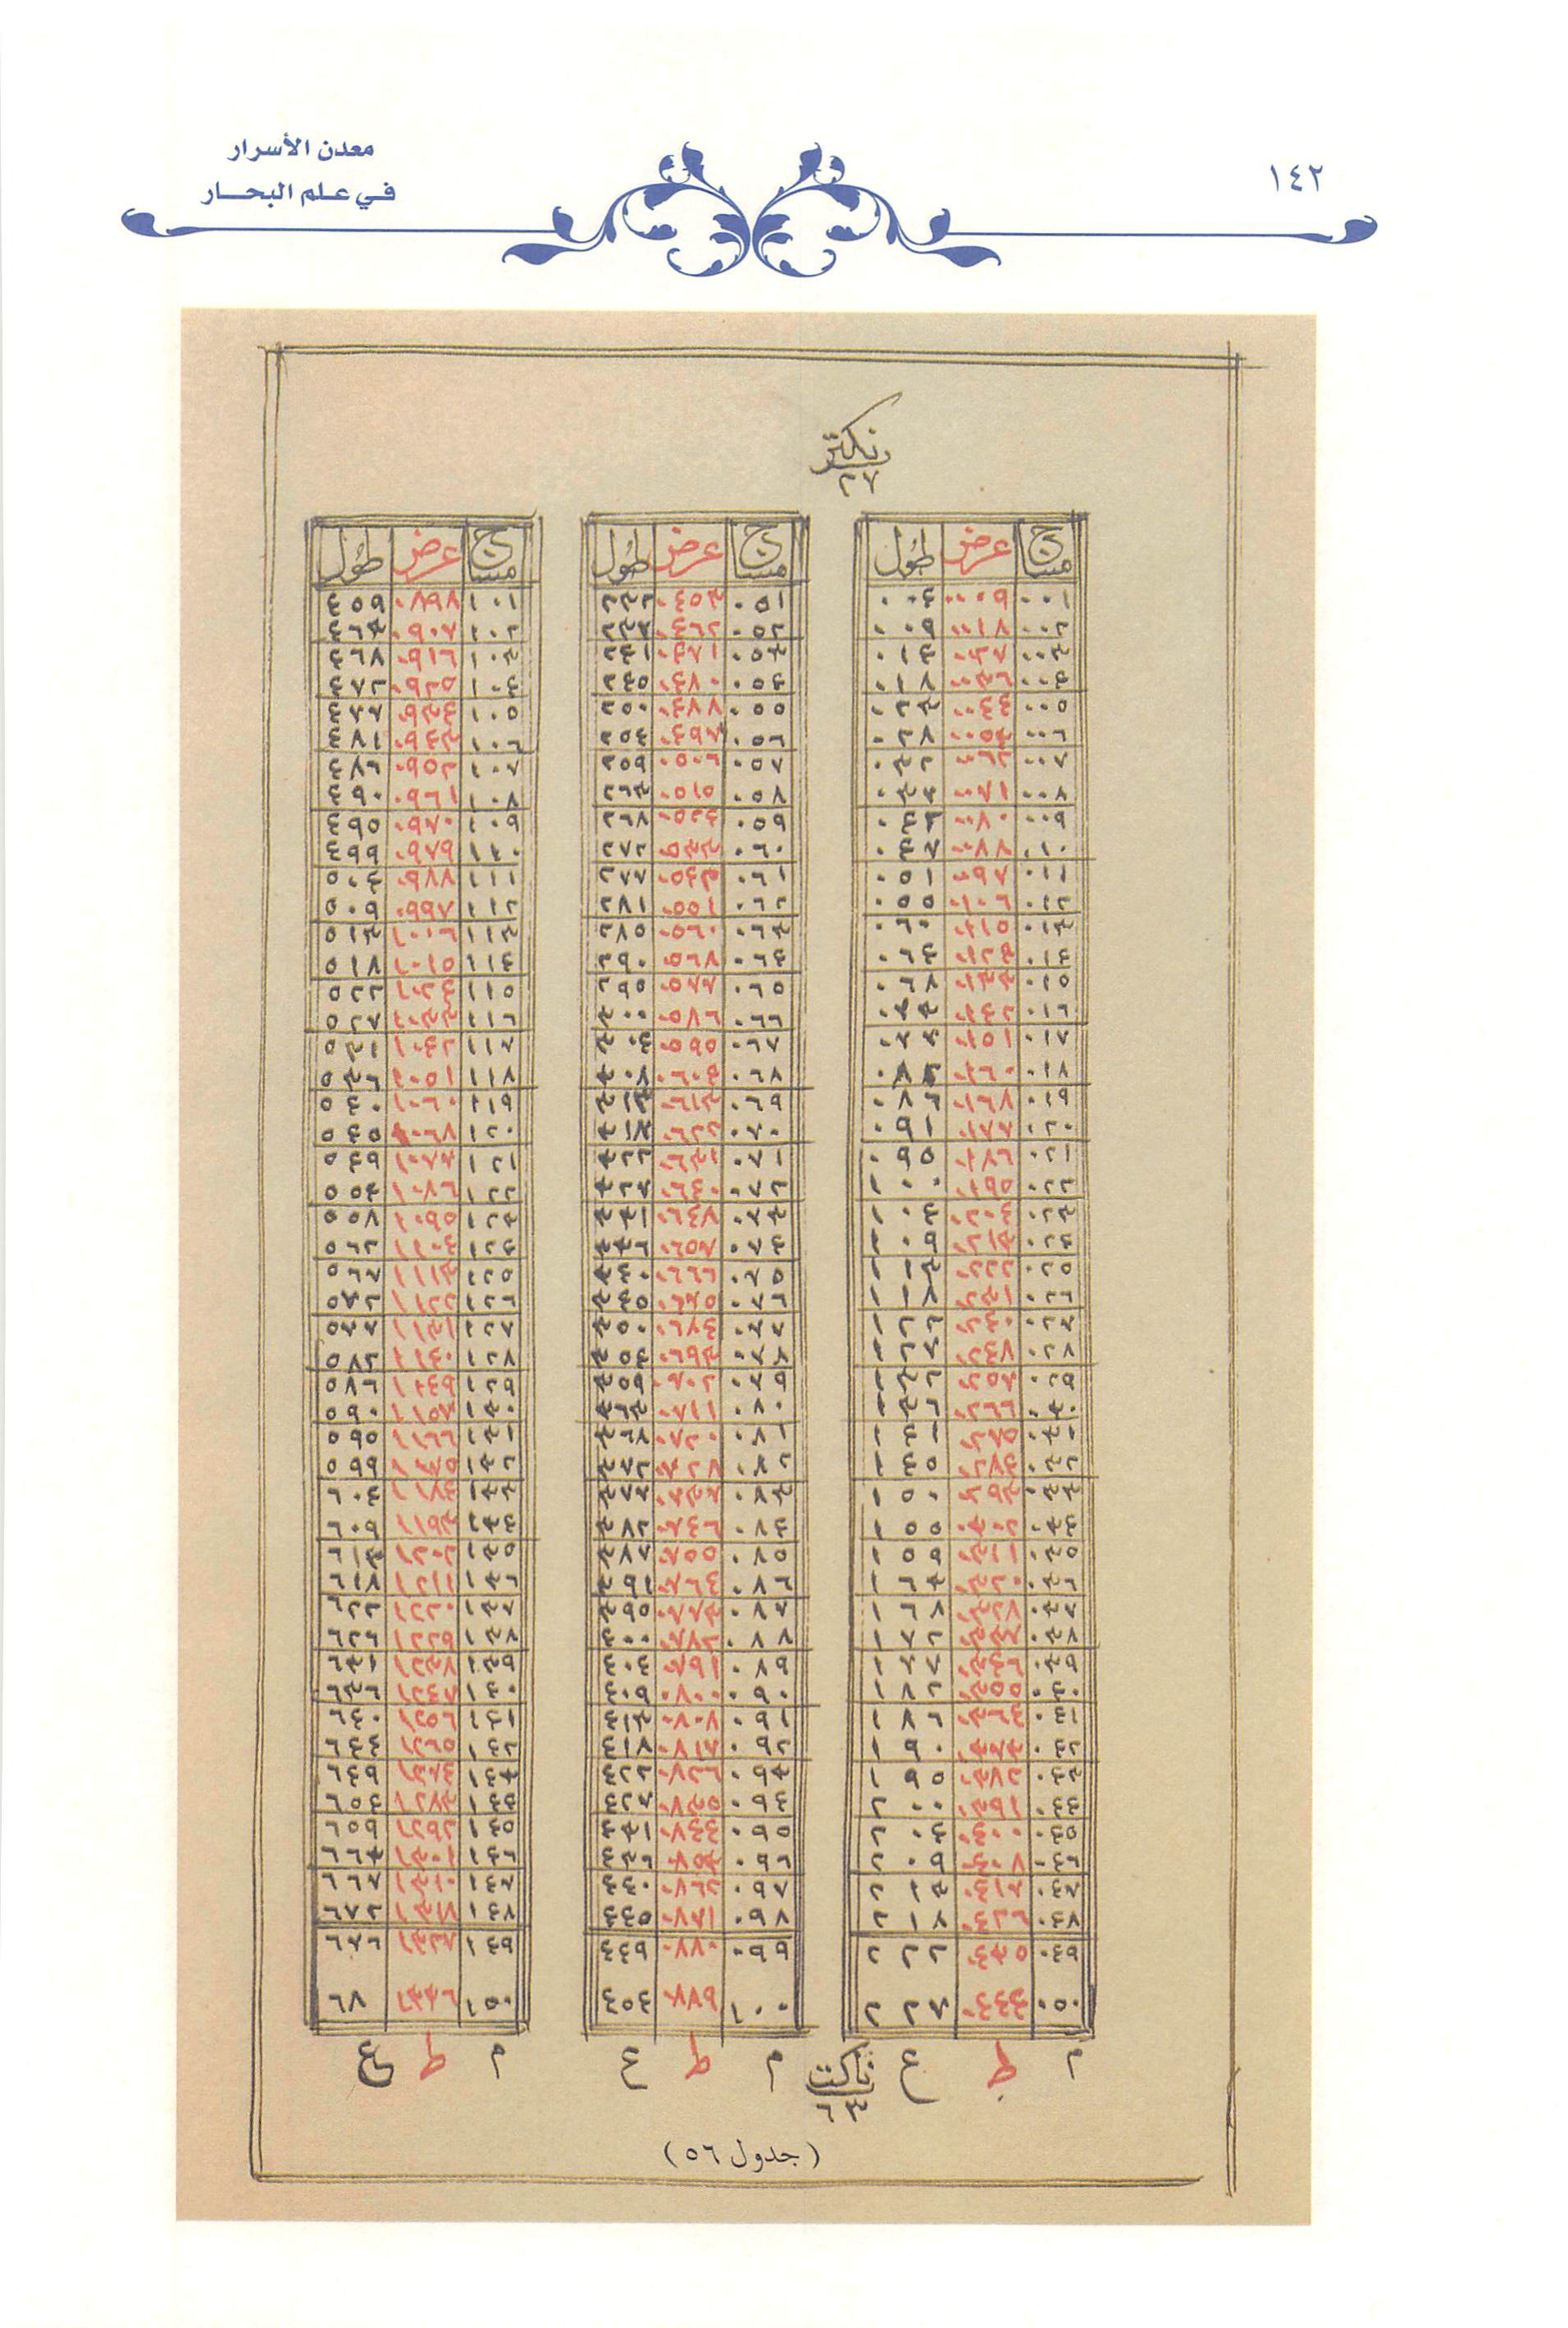 معدن الأسرار
في علم البحار
١٤٢
نكتر
٢٧
مساج عرض طول
٠٠١ ٠٠٠٩ ٠٠٤
٠٠٢ ٠٠١٨ ٠٠٩
٠٠٣ ٠٠٢٧ ٠١٣
٠٠٤ ٠٠٣٦ ٠١٨
٠٠٥ ٠٠٤٤ ٠٢٣
٠٠٦ ٠٠٥٣
٠٠٧ ٠٠٦٢ ٠٣٢
٠٠٨ ٠٠٧١
٠٠٩ ٠٠٨٠
٠١٠ ٠٠٨٨
٠١١ ٠٠٩٧ ٠٥١
٠١٢ ٠١٠٦ ٠٥٥
٠١٣ ٠١١٥ ٠٦٠
٠١٤ ٠١٢٤ ٠٦٤
٠١٥ ٠١٣٣ ٠٦٨
٠١٦ ٠١٤٢ ٠٧٣
٠١٧ ٠١٥١ ٠٧٧
٠١٨ ٠١٦٠ ٠٨٢
٠١٩ ٠١٦٨ ٠٨٦
٠٢٠ ٠١٧٧ ٠٩١
٠٢١ ٠١٨٦ ٠٩٥
٠٢٢ ٠١٩٥ ١٠٠
٠٢٣ ٠٢٠٤ ١٠٤
٠٢٤ ٠٢١٣ ١٠٩
٠٢٥ ٠٢٢٢ ١١٣
٠٢٦ ٠٢٣١ ١١٨
٠٢٧ ٠٢٤٠ ١٢٢
٠٢٨ ٠٢٤٧ ١٢٧
٠٢٩ ٠٢٥٧ ١٣٢
٠٣٠ ٠٢٦٦ ١٣٦
٠٣١ ٠٢٧٥ ١٤١
٠٣٢ ٠٢٨٤ ١٤٥
٠٣٣ ٠٢٩٣ ١٥٠
٠٣٤ ٠٣٠٢ ١٥٥
٠٣٥ ٠٣١١ ١٥٩
٠٣٦ ٠٣٢٠ ١٦٣
٠٣٧ ٠٣٢٨ ١٦٨
٠٣٨ ٠٣٣٧ ١٧٢
٠٣٩ ٠٣٤٦ ١٧٧
٠٤٠ ٠٣٥٥ ١٨٢
٠٤١ ٠٣٦٤ ١٨٦
٠٤٢ ٠٣٧٣ ١٩٠
٠٤٣ ٠٣٨٢ ١٩٥
٠٤٤ ٠٣٩١ ٢٠٠
٠٤٥ ٠٤٠٠ ٢٠٤
٠٤٦ ٠٤٠٨ ٢٠٩
٠٤٧ ٠٤١٧ ٢١٣
٠٤٨ ٠٤٢٦ ٢١٨
٠٤٩ ٠٤٣٥ ٢٢٢
٠٥٠ ٠٤٤٤ ٢٢٧
م ط ع
مساج عرض طول
٠٥١ ٠٤٥٣
٠٥٢ ٠٤٦٢
٠٥٣ ٠٤٧١ ٢٤١
٠٥٤ ٠٤٨٠ ٢٤٥
٠٥٥ ٠٤٨٨ ٢٥٠
٠٥٦ ٠٤٩٨ ٢٥٤
٠٥٧ ٠٥٠٦ ٢٥٩
٠٥٨ ٠٥١٥ ٢٦٣
٠٥٩ ٠٥٢٤ ٢٦٨
٠٦٠ ٠٥٣٣ ٢٧٢
٠٦١ ٠٥٤٣ ٢٧٧
٠٦٢ ٠٥٥١ ٢٨١
٠٦٣ ٠٥٦٠ ٢٨٥
٠٦٤ ٠٥٦٨ ٢٩٠
٠٦٥ ٠٥٧٧ ٢٩٥
٠٦٦ ٠٥٨٦ ٣٠٠
٠٦٧ ٠٥٩٥ ٣٠٤
٠٦٨ ٠٦٠٤ ٣٠٨
٠٦٩ ٠٦١٣ ٣١٣
٠٧٠ ٠٦٢٢ ٣١٧
٠٧١ ٠٦٣١ ٣٢٢
٠٧٢ ٠٦٤٠ ٣٢٧
٠٧٣ ٠٦٤٨ ٣٣١
٠٧٤ ٠٦٥٧ ٣٣٦
٠٧٥ ٠٦٦٦ ٣٤٠
٠٧٦ ٠٦٧٥ ٣٤٥
٠٧٧ ٠٦٨٤ ٣٥٠
٠٧٨ ٠٦٩٣ ٣٥٤
٠٧٩ ٠٧٠٢ ٣٥٩
٠٨٠ ٠٧١١ ٣٦٣
٠٨١ ٠٧٢٠ ٣٦٨
٠٨٢ ٠٧٢٨ ٣٧٢
٠٨٣ ٠٧٣٧ ٣٧٧
٠٨٤ ٠٧٤٦ ٣٨٢
٠٨٥ ٠٧٥٥ ٣٨٧
٠٨٦ ٠٧٦٤ ٣٩١
٠٨٧ ٠٧٧٣ ٣٩٥
٠٨٨ ٠٧٨٢ ٤٠٠
٠٨٩ ٠٧٩١ ٤٠٤
٠٩٠ ٠٨٠٠ ٤٠٩
٠٩١ ٠٨٠٨ ٤١٣
٠٩٢ ٠٨١٧ ٤١٨
٠٩٣ ٠٨٢٦ ٤٢٢
٠٩٤ ٠٨٣٥ ٤٢٧
٠٩٥ ٠٨٤٤ ٤٣١
٠٩٦ ٠٨٥٣ ٤٣٦
٠٩٧ ٠٨٦٢ ٤٤٠
٠٩٨ ٠٨٧١ ٤٤٥
٠٩٩ ٠٨٨٠ ٤٤٩
١٠٠ ٠٨٨٩ ٤٥٤
م ط ع
مساج عرض طول
١٠١ ٠٨٩٨ ٤٥٩
١٠٢ ٠٩٠٧ ٤٦٣
١٠٣ ٠٩١٦ ٤٦٨
١٠٤ ٠٩٢٥ ٤٧٢
١٠٥ ٠٩٣٤ ٤٧٧
١٠٦ ٠٩٤٣ ٤٨١
١٠٧ ٠٩٥٢ ٤٨٦
١٠٨ ٠٩٦١ ٤٩٠
١٠٩ ٠٩٧٠ ٤٩٥
١١٠ ٠٩٧٩ ٤٩٩
١١١ ٠٩٨٨ ٥٠٤
١١٢ ٠٩٩٧ ٥٠٩
١١٣ ١٠٠٦ ٥١٣
١١٤ ١٠١٥ ٥١٨
١١٥ ١٠٢٤ ٥٢٢
١١٦ ١٠٣٣ ٥٢٧
١١٧ ١٠٤٢ ٥٣١
١١٨ ١٠٥١ ٥٣٦
١١٩ ١٠٦٠ ٥٤٠
١٢٠ ١٠٦٨ ٥٤٥
١٢١ ١٠٧٧ ٥٤٩
١٢٢ ١٠٨٦ ٥٥٤
١٢٣ ١٠٩٥ ٥٥٨
١٢٤ ١١٠٤ ٥٦٢
١٢٥ ١١١٣ ٥٦٧
١٢٦ ١١٢٢ ٥٧٢
١٢٧ ١١٣١ ٥٧٧
١٢٨ ١١٤٠ ٥٨٢
١٢٩ ١١٤٩ ٥٨٦
١٣٠ ١١٥٧ ٥٩٠
١٣١ ١١٦٦ ٥٩٥
١٣٢ ١١٧٥ ٥٩٩
١٣٣ ١١٨٤ ٦٠٤
١٣٤ ١١٩٣ ٦٠٩
١٣٥ ١٢٠٢ ٦١٣
١٣٦ ١٢١١ ٦١٨
١٣٧ ١٢٢٠ ٦٢٢
١٣٨ ١٢٢٩ ٦٢٦
١٣٩ ١٢٣٧ ٦٣١
١٤٠ ١٢٤٨ ٦٣٦
١٤١ ١٢٥٦ ٦٤٠
١٤٢ ١٢٦٥ ٦٤٤
١٤٣ ١٢٧٤ ٦٤٩
١٤٤ ١٢٨٣ ٦٥٤
١٤٥ ١٢٩٢ ٦٥٩
١٤٦ ١٣٠١ ٦٦٣
١٤٧ ١٣١٠ ٦٦٧
١٤٨ ١٣١٨ ٦٧٢
١٤٩ ١٣٢٧ ٦٧٦
١٥٠ ١٣٣٦ ٦٨
م ط ع
نكت
٦٣
(جدول ٥٦)